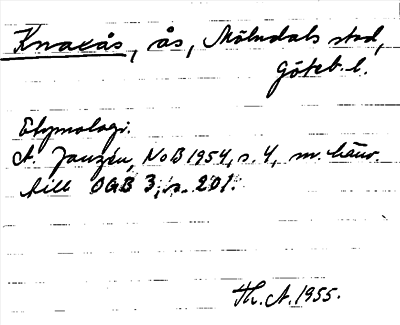 Knaxås, ås, Mölndals stad,
Göteb. l.
Etymologi.
A. Janzén, NoB 1954, s. 4, m. hänv.
till OGB 3, s. 201.
Th. A. 1955.